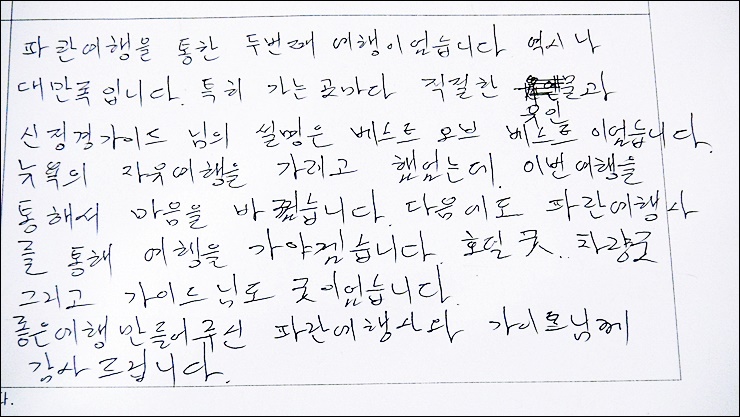 파란여행을 통한 두번째 여행이었습니다 역시나
대만족입니다. 특히 가는 곳마다 적절한 물과
신정경가이드 님의 설명은 베스트 오브 베스트이었습니다.
뉴욕의 자유여행을 가려고 했었는데. 이번여행을
통해서 마음을 바꿨습니다. 다음에도 파란여행사
를 통해 여행을 가야겠습니다. 호텔 굿. 차량굿
그리고 가이드님도 굿이었습니다.
좋은여행만들어주신 파란여행사와 가이드님께
감사드립니다.
다.